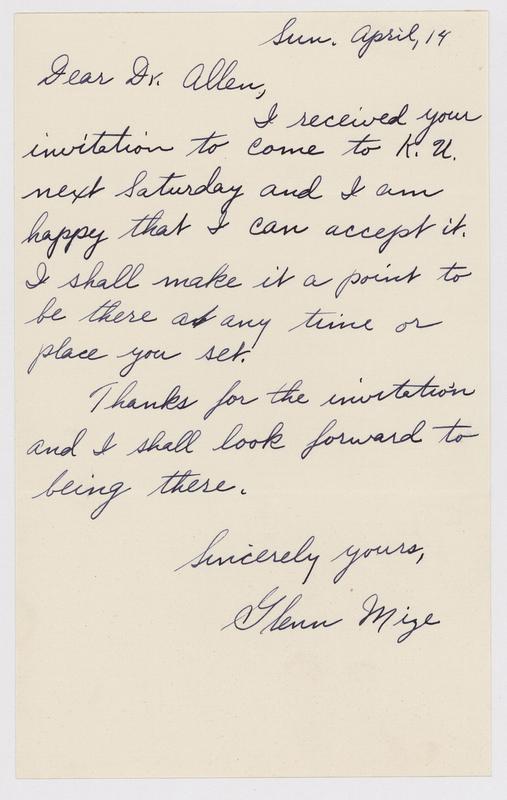 Sun. April, 14
Dear Dr. Allen,
I received your
invitation to come to K. U.
next Saturday and I am
happy that I can accept it.
I shall make it a point to
be there at any time or
place you set.
Thanks for the invitation
and I shall look forward to
being there.
Sincerely yours,
Glenn Mize